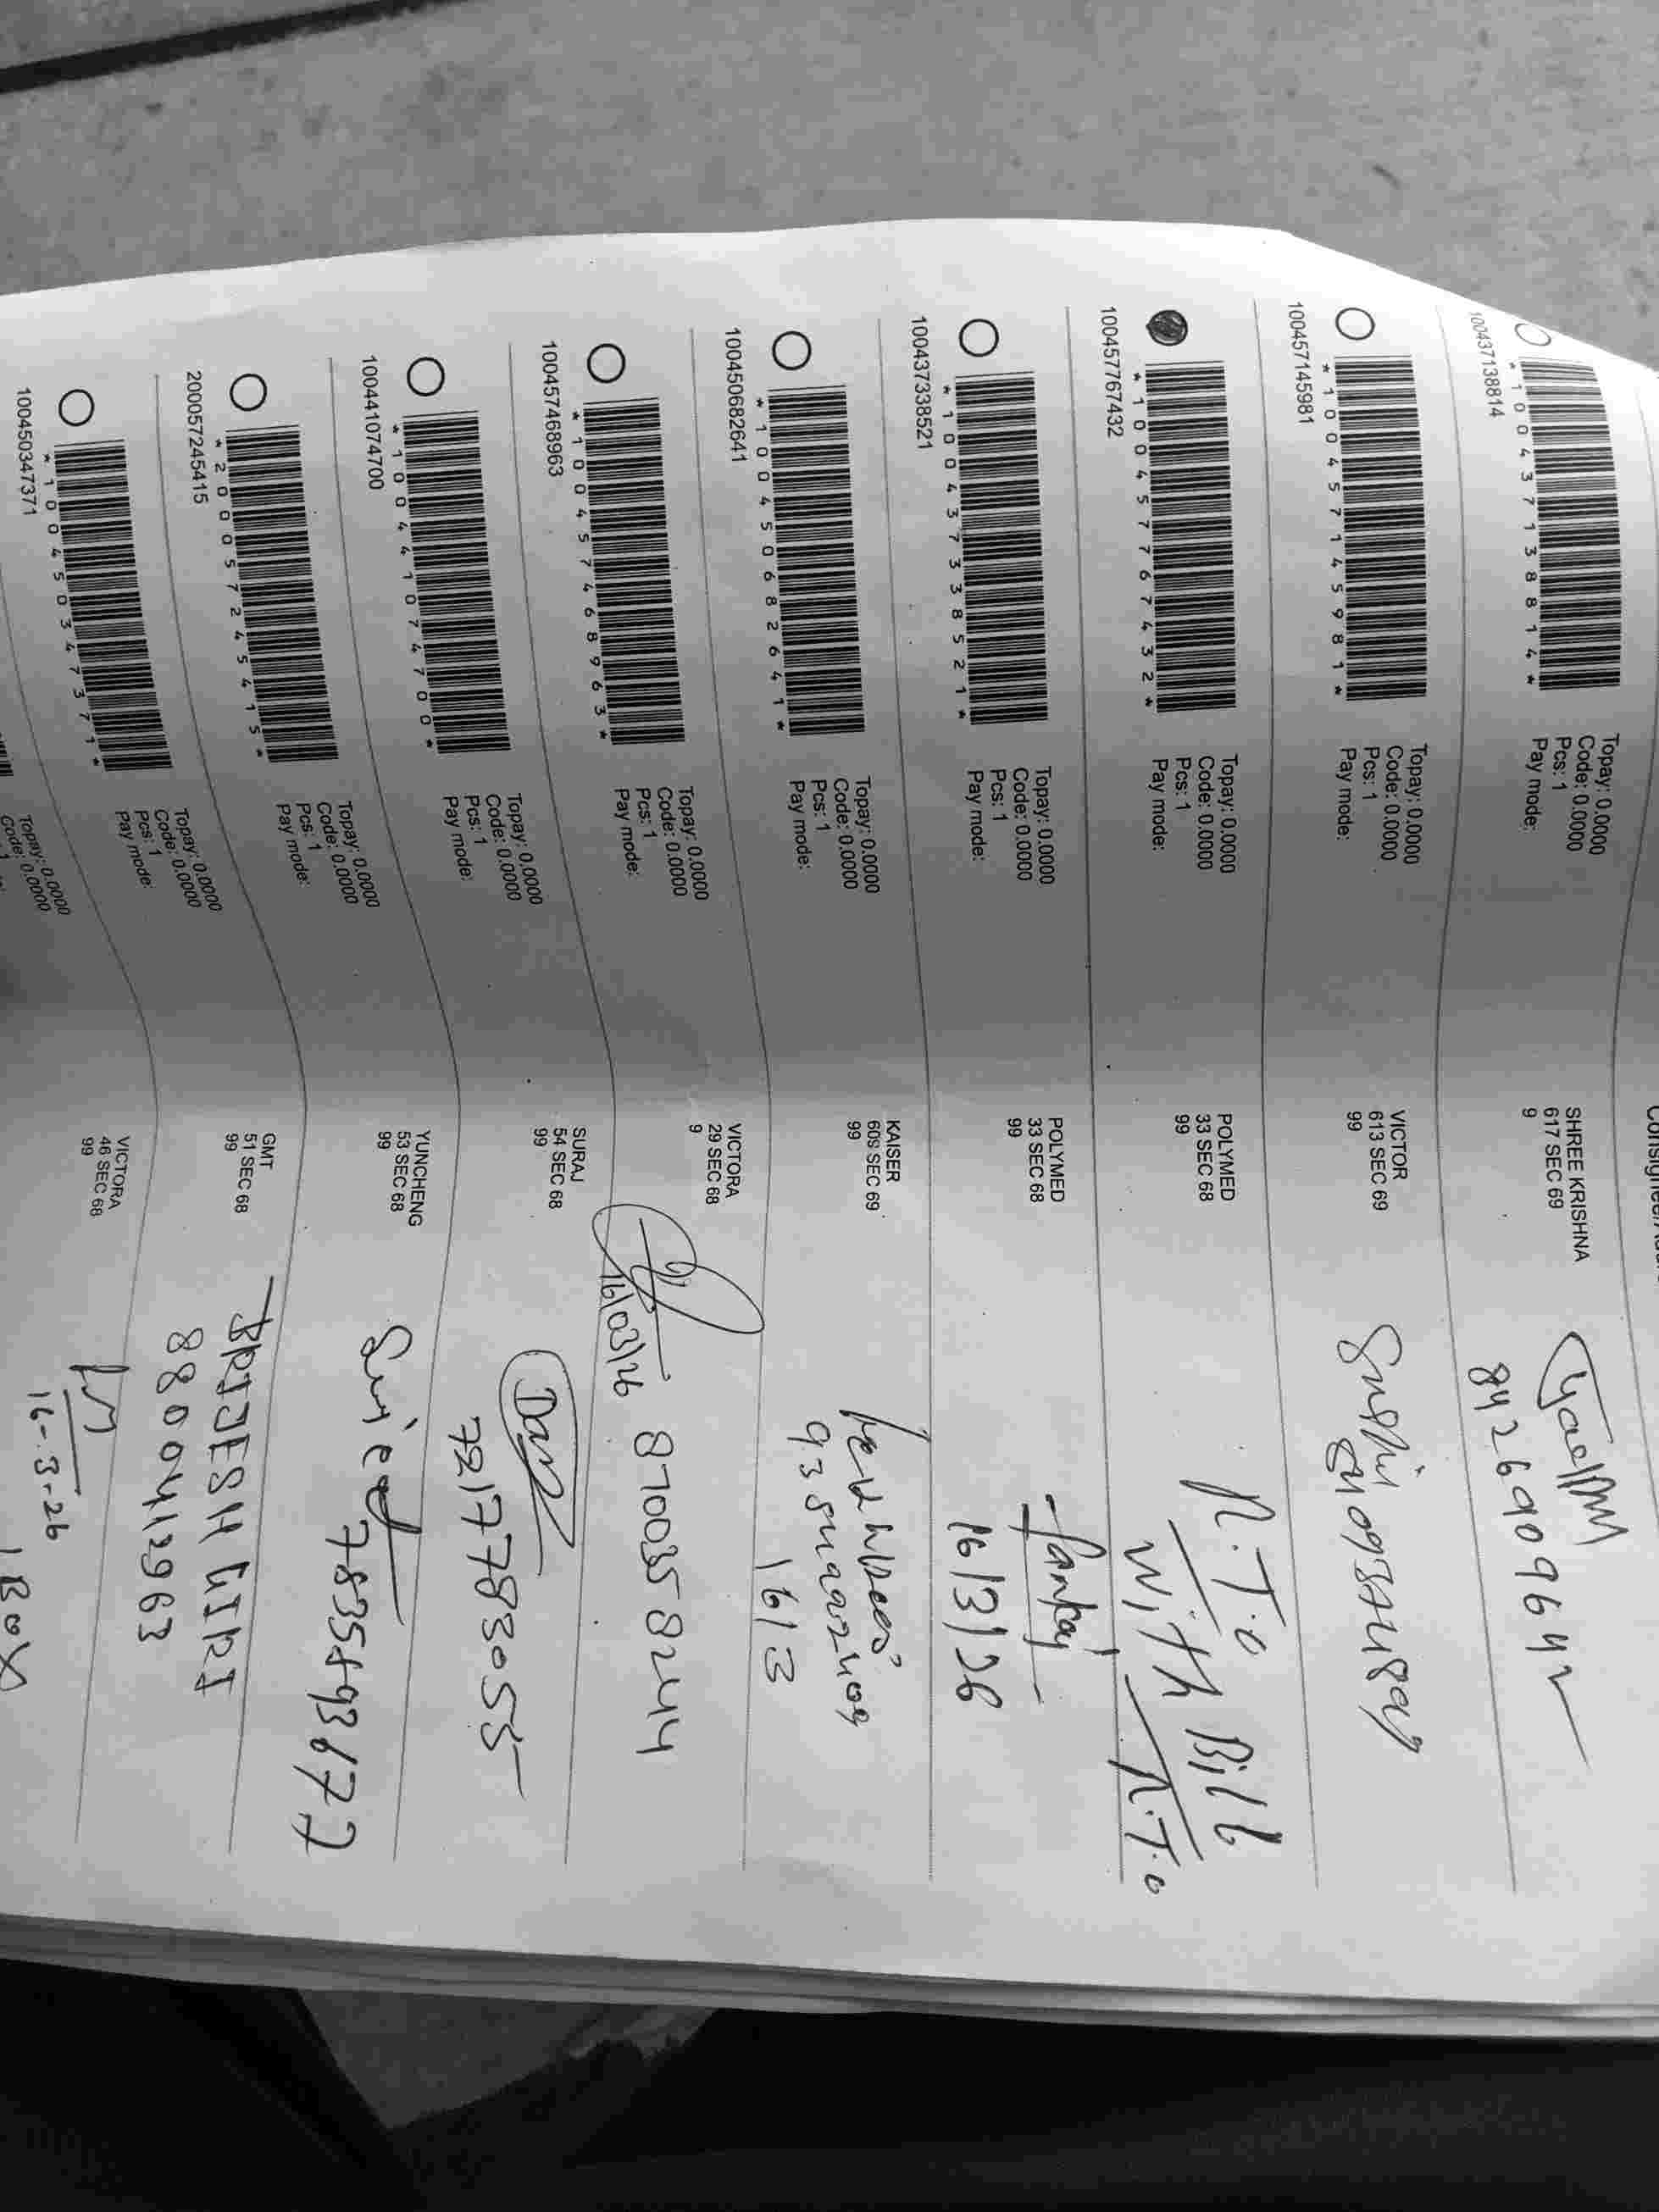 Consignee/Addre
100437138814
*100437138814*
Topay: 0.0000
Code: 0.0000
Pcs: 1
Pay mode:
SHREE KRISHNA
617 SEC 69
9
8426909642
100457145981
*100457145981*
Topay: 0.0000
Code: 0.0000
Pcs: 1
Pay mode:
VICTOR
613 SEC 69
99
100457767432
*100457767432*
Topay: 0.0000
Code: 0.0000
Pcs: 1
Pay mode:
POLYMED
33 SEC 68
99
R.T.O
With Bill
R.T.O
100437338521
*100437338521*
Topay: 0.0000
Code: 0.0000
Pcs: 1
Pay mode:
POLYMED
33 SEC 68
99
Pankaj
16/3/26
100450682641
*100450682641*
Topay: 0.0000
Code: 0.0000
Pcs: 1
Pay mode:
KAISER
609 SEC 69
99
16/3
100457468963
*100457468963*
Topay: 0.0000
Code: 0.0000
Pcs: 1
Pay mode:
VICTORA
29 SEC 68
9
16/03/26
8700358244
100441074700
*100441074700*
Topay: 0.0000
Code: 0.0000
Pcs: 1
Pay mode:
SURAJ
54 SEC 68
99
7217783055
200057245415
*200057245415*
Topay: 0.0000
Code: 0.0000
Pcs: 1
Pay mode:
YUNCHENG
53 SEC 68
99
100450347371
*100450347371*
Topay: 0.0000
Code: 0.0000
Pcs: 1
Pay mode:
GMT
51 SEC 68
99
BRIJESH GIRI
8800412963
Topay: 0.0000
Code: 0.0000
VICTORA
46 SEC 68
99
16-3-26
1 BOX